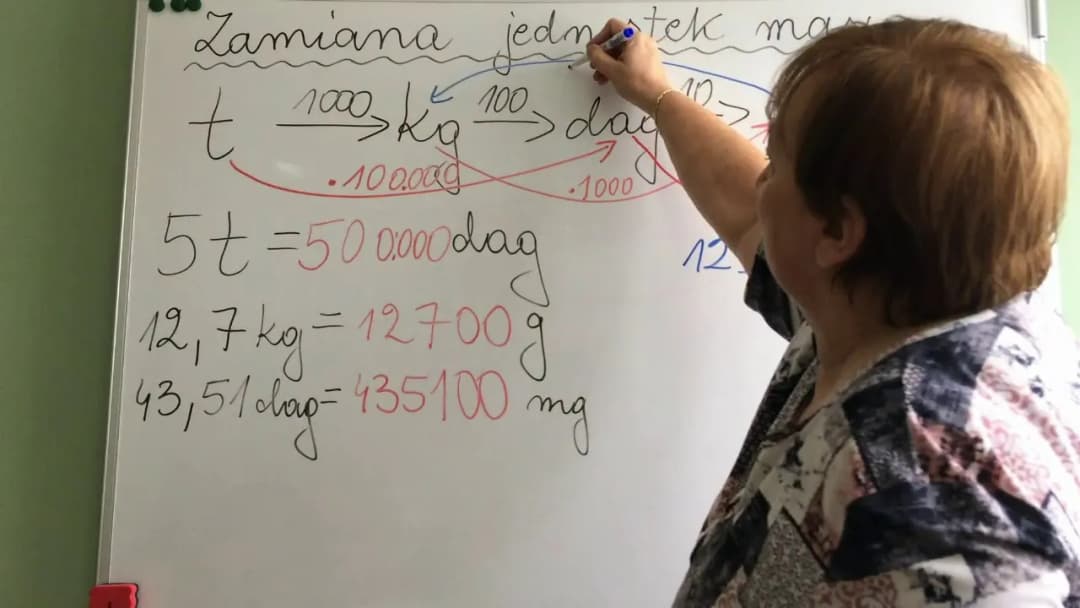 Zamiana jednostek
1000 100 10
t kg dag
·100.000 ·1000
5t = 500.000 dag
12,7 kg = 12700 g
43,51 dag = 435100 mg
12